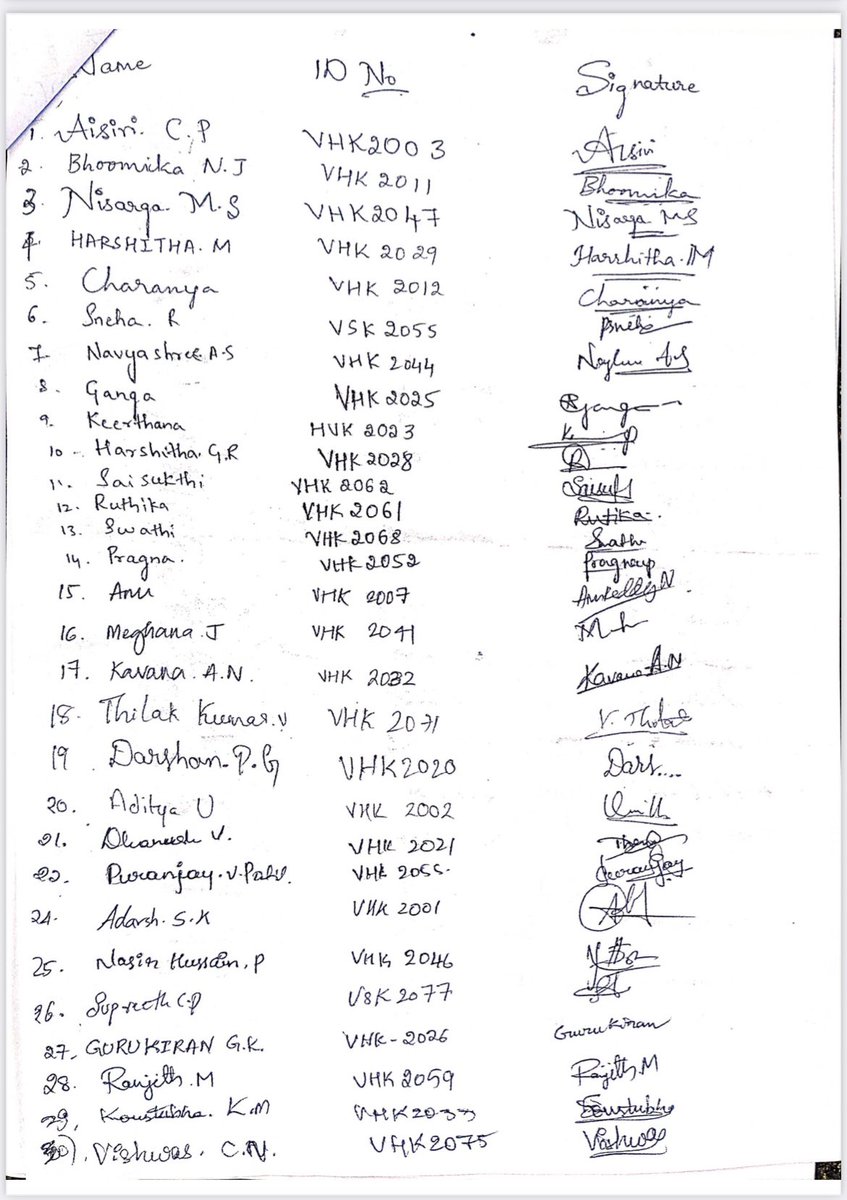 Name ID No Signature
1. Aisiri. C.P VHK2003 Aisiri
2. Bhoomika N.J VHK 2011 Bhoomika
3. Nisarga M.S VHK2047 Nisarga MS
4. HARSHITHA. M VHK 2029 Harshitha.M
5. Charanya VHK 2012 Charanya
6. Sneha. R VSK 2055
7. Navyashree A.S VHK 2044
8. Ganga VHK 2025 Ganga
9. Keerthana HVK 2023
10. Harshitha. G.R VHK 2028
11. Sai sukthi VHK 2062
12. Ruthika VHK 2061 Rutika
13. Swathi VHK 2068 Swathi
14. Pragna. VHK 2052
15. Anu VHK 2007 Anu Reddy N
16. Meghana J VHK 2041
17. Kavana. A.N. VHK 2032 Kavana A.N
18. Thilak Kumar. V VHK 2071 V. Thilak
19 Darshan. P.G VHK2020 Dars....
20. Aditya U VHK 2002
21. Dhanush V. VHK 2021
23. Puranjay. V. VHK 2055. Puranjay
24. Adarsh. S.K VHK 2001
25. Nasir Hussain. P VHK 2046
26. Supreeth C.P VSK 2077
27. GURUKIRAN G.K. VHK-2026 Gurukiran
28. Ranjith. M VHK 2059 Ranjith. M
29. Koustubha. K.M VHK2033 Koustubha
30). Vishwas. C.N. VHK2075 Vishwas